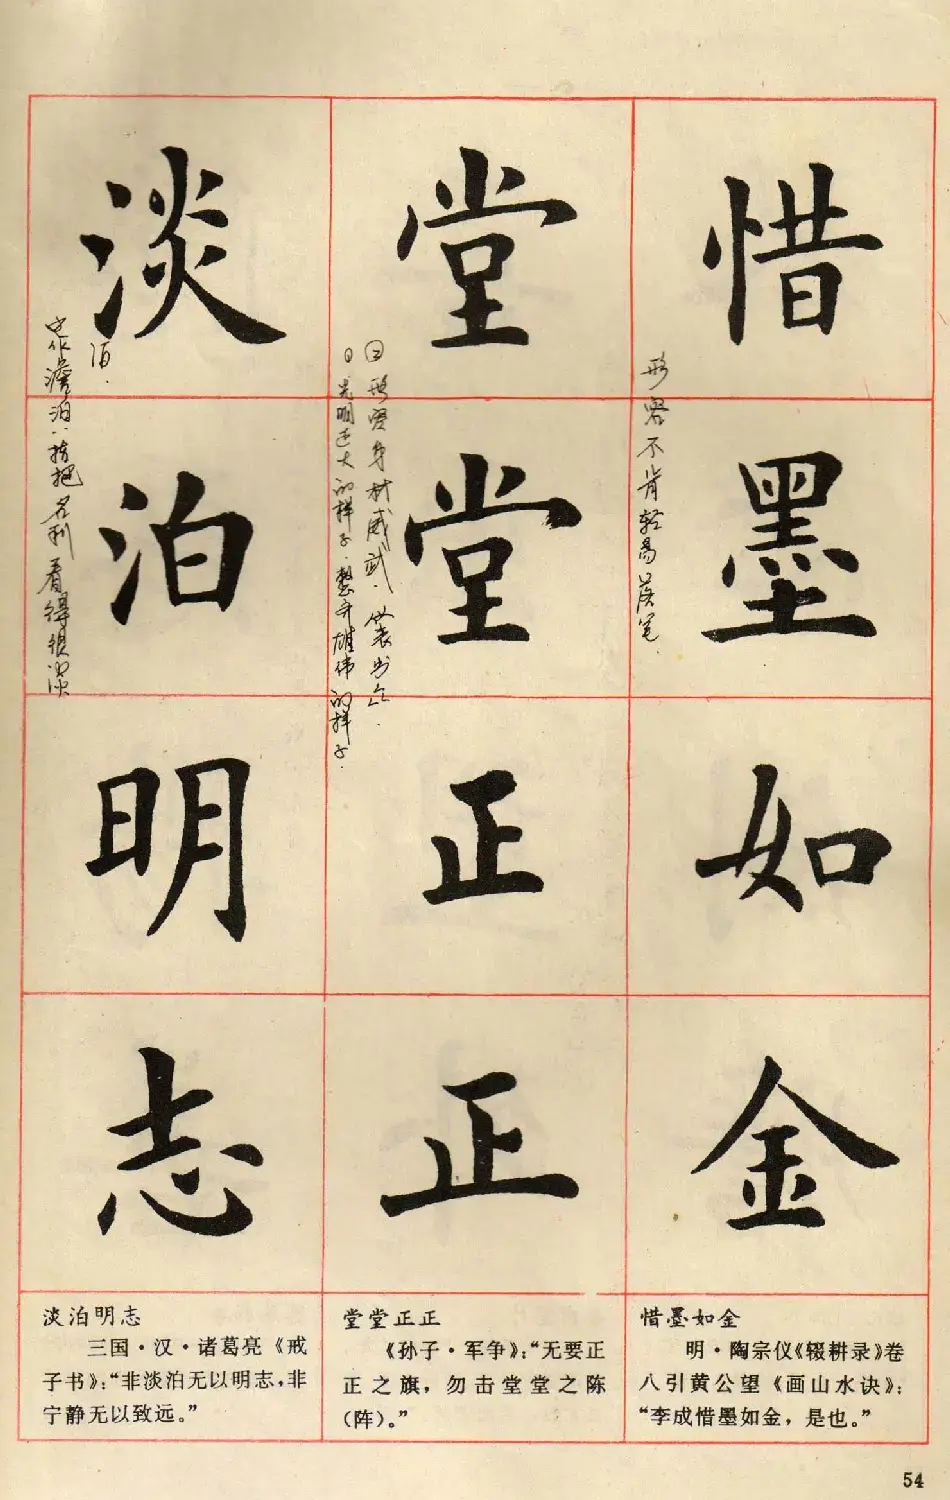 惜墨如金
形容不肯轻易落笔
堂堂正正
①光明正大的样子.整齐雄伟的样子.
②形容身材威武.仪表出众.
淡泊明志
泊.
也作澹泊..指把名利看得很淡
淡泊明志
三国·汉·诸葛亮《戒
子书》:“非淡泊无以明志,非
宁静无以致远。”
堂堂正正
《孙子·军争》:“无要正
正之旗,勿击堂堂之陈
(阵)。”
惜墨如金
明·陶宗仪《辍耕录》卷
八引黄公望《画山水诀》:
“李成惜墨如金,是也。”
54